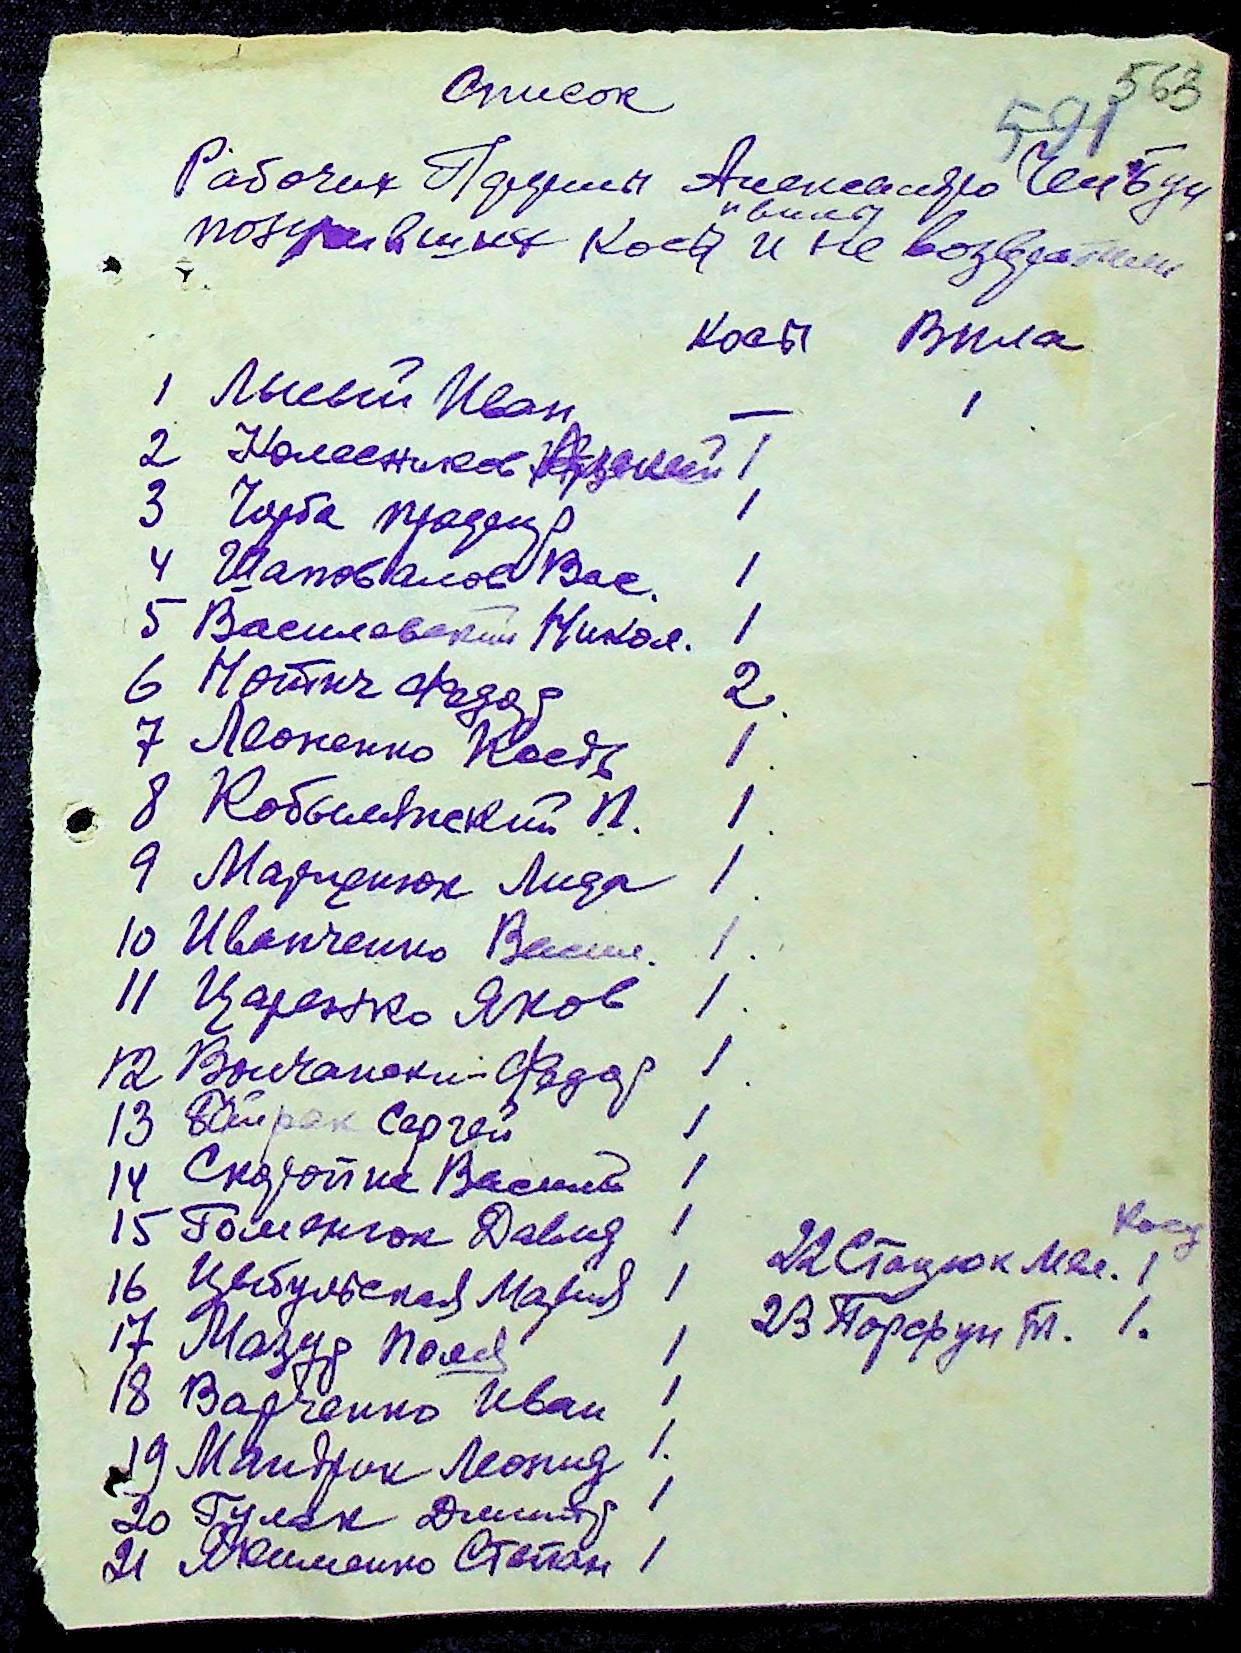 563
591
Список
Рабочих Фермы Александро
и вилы
косы и не возвратили
Косы Вила
1 Лысый Иван — 1
2 Колесников 1
3 Чорба 1
4 Шаповалов Вас. 1
5 Василевский Никол. 1
6 Нотич Федор 2.
7 Леоненко Кость 1.
8 Кобылянский П. 1.
9 Марценюк Лида 1.
10 Иванченко Васил. 1.
11 Царенко Яков 1.
12 Федор 1.
13 Сергей 1
14 Василий 1
15 Гоменюк Давид 1
16 Цыбульская Мария 1
17 Мазур Поля 1
18 Варченко Иван 1
19 Мандрик Леонид 1.
20 Гулак Дмитр 1
21 Якименко Степан 1
Косы
22 Стацюк Мал. 1
23 Порфун Т. 1.